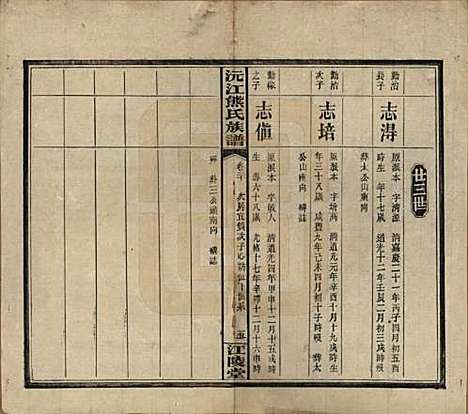 廿三世
勤治
長子
志淂
原派本 字清派 清嘉慶二十一年丙子四月初五酉
時生 年十七歲 道光十二年壬辰二月初三戌時
葬太公山南向
勤治
次子
志培
原派本 字培 清道光元年辛酉十月十九戌時生
年三十八歲 咸豐九年己未四月初十子時歿 葬太
公山南向 碑誌
勤稼
之子
志值
原派本 字敏人 清道光四年甲申十二月十五戌時
生 六十八歲 光緒十七年辛卯十二月十六申時
歿 葬三公頭南向 碑誌
沅江熊氏族譜
卷二
江陵堂